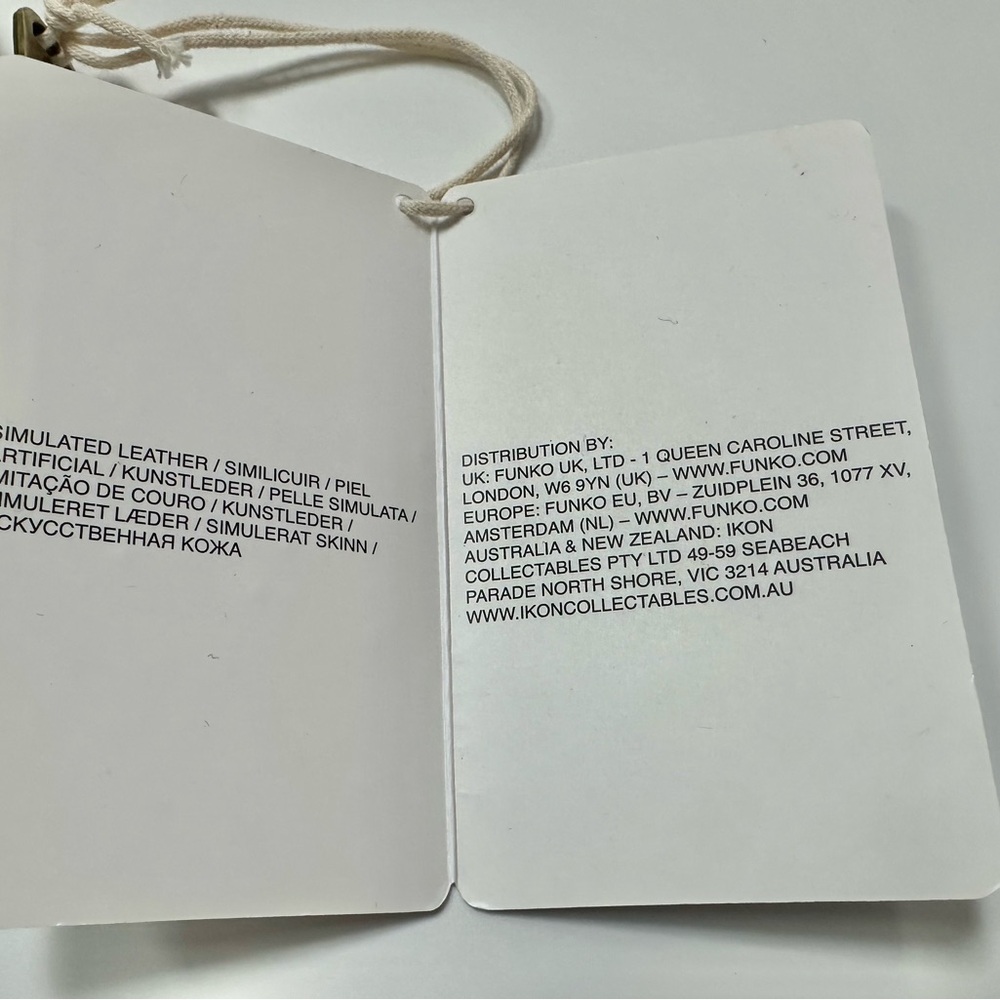 SIMULATED LEATHER / SIMILICUIR / PIEL
ARTIFICIAL / KUNSTLEDER / PELLE SIMULATA /
IMITAÇÃO DE COURO / KUNSTLEDER /
SIMULERET LÆDER / SIMULERAT SKINN /
ИСКУССТВЕННАЯ КОЖА
DISTRIBUTION BY:
UK: FUNKO UK, LTD - 1 QUEEN CAROLINE STREET,
LONDON, W6 9YN (UK) – WWW.FUNKO.COM
EUROPE: FUNKO EU, BV – ZUIDPLEIN 36, 1077 XV,
AMSTERDAM (NL) – WWW.FUNKO.COM
AUSTRALIA & NEW ZEALAND: IKON
COLLECTABLES PTY LTD 49-59 SEABEACH
PARADE NORTH SHORE, VIC 3214 AUSTRALIA
WWW.IKONCOLLECTABLES.COM.AU